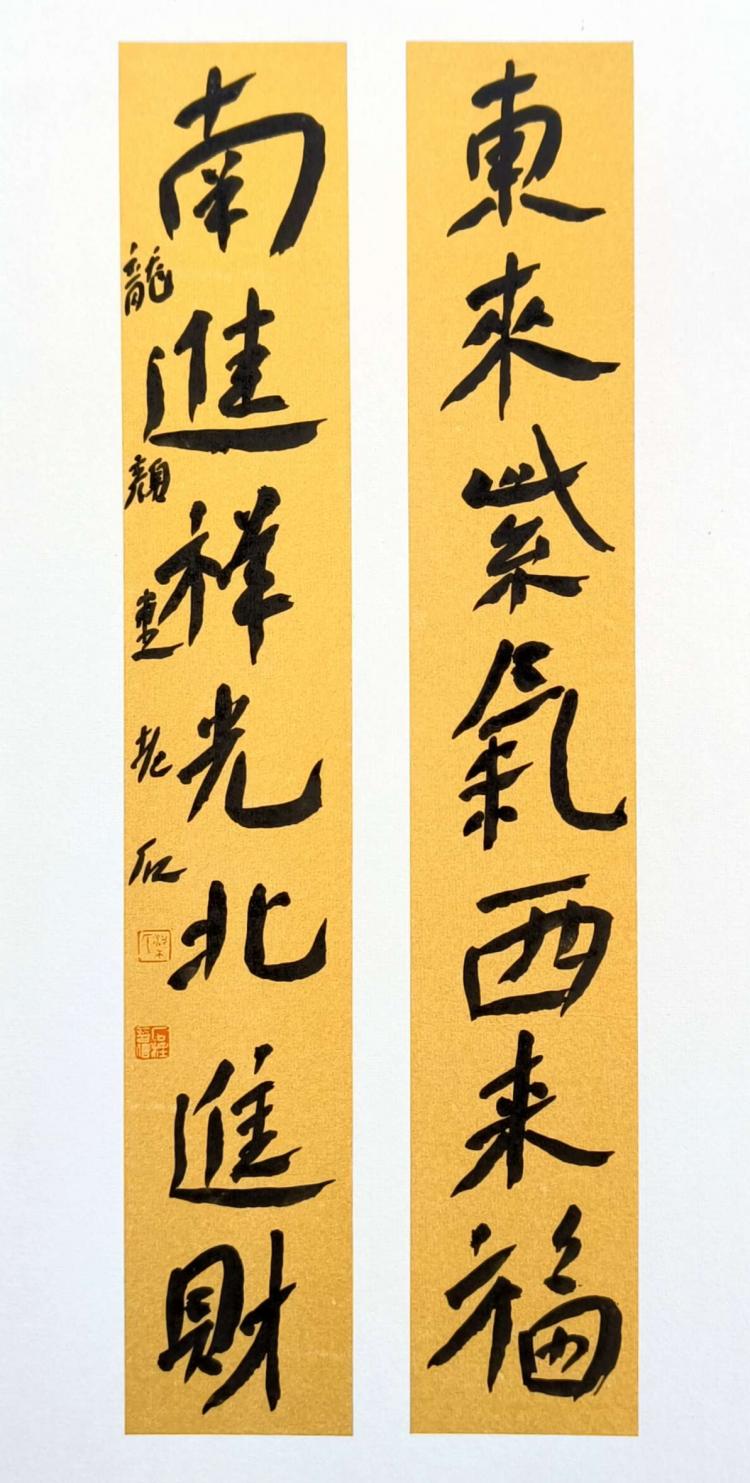 東來紫氣西来福
南進祥光北進財
龍顏
老石